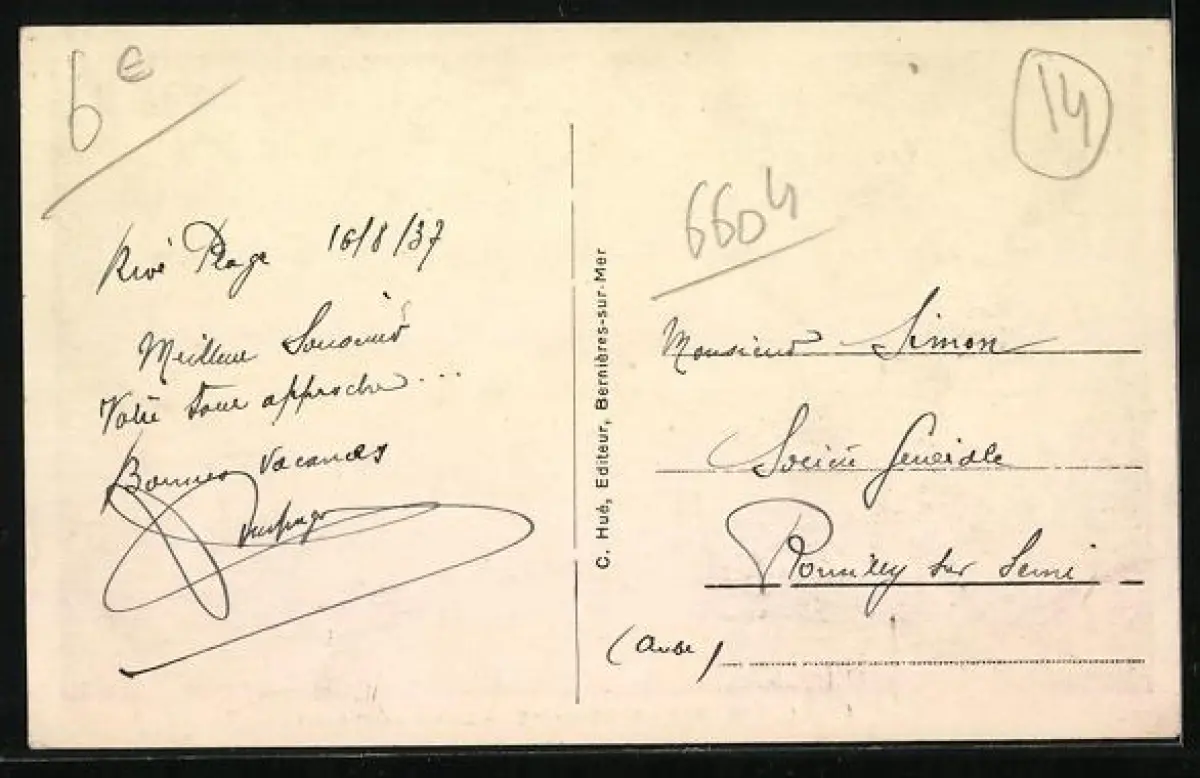 6 €
14
6604
Rive Plage 16/8/37
Meilleur Souvenir
Votre tour approche...
Bonnes Vacances
C. Hué, Editeur, Bernières-sur-Mer
Monsieur Simon
Société Generale
Romilly sur Seine
(Aube)